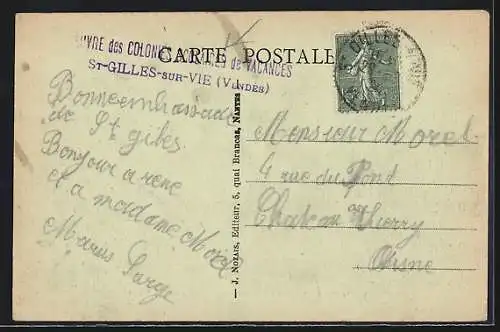 CARTE POSTALE
UVRE des COLONIES DE VACANCES
ST-GILLES-SUR-VIE (VENDÉE)
Bonne embrassade
de St giles
Bonjour a rene
et a madame Morel
Marius Large
— J. NOZAIS, Editeur, 5, quai Brancas, NANTES
Monsieur Morel
4 rue du Pond
Chateau Thierry
Aisne